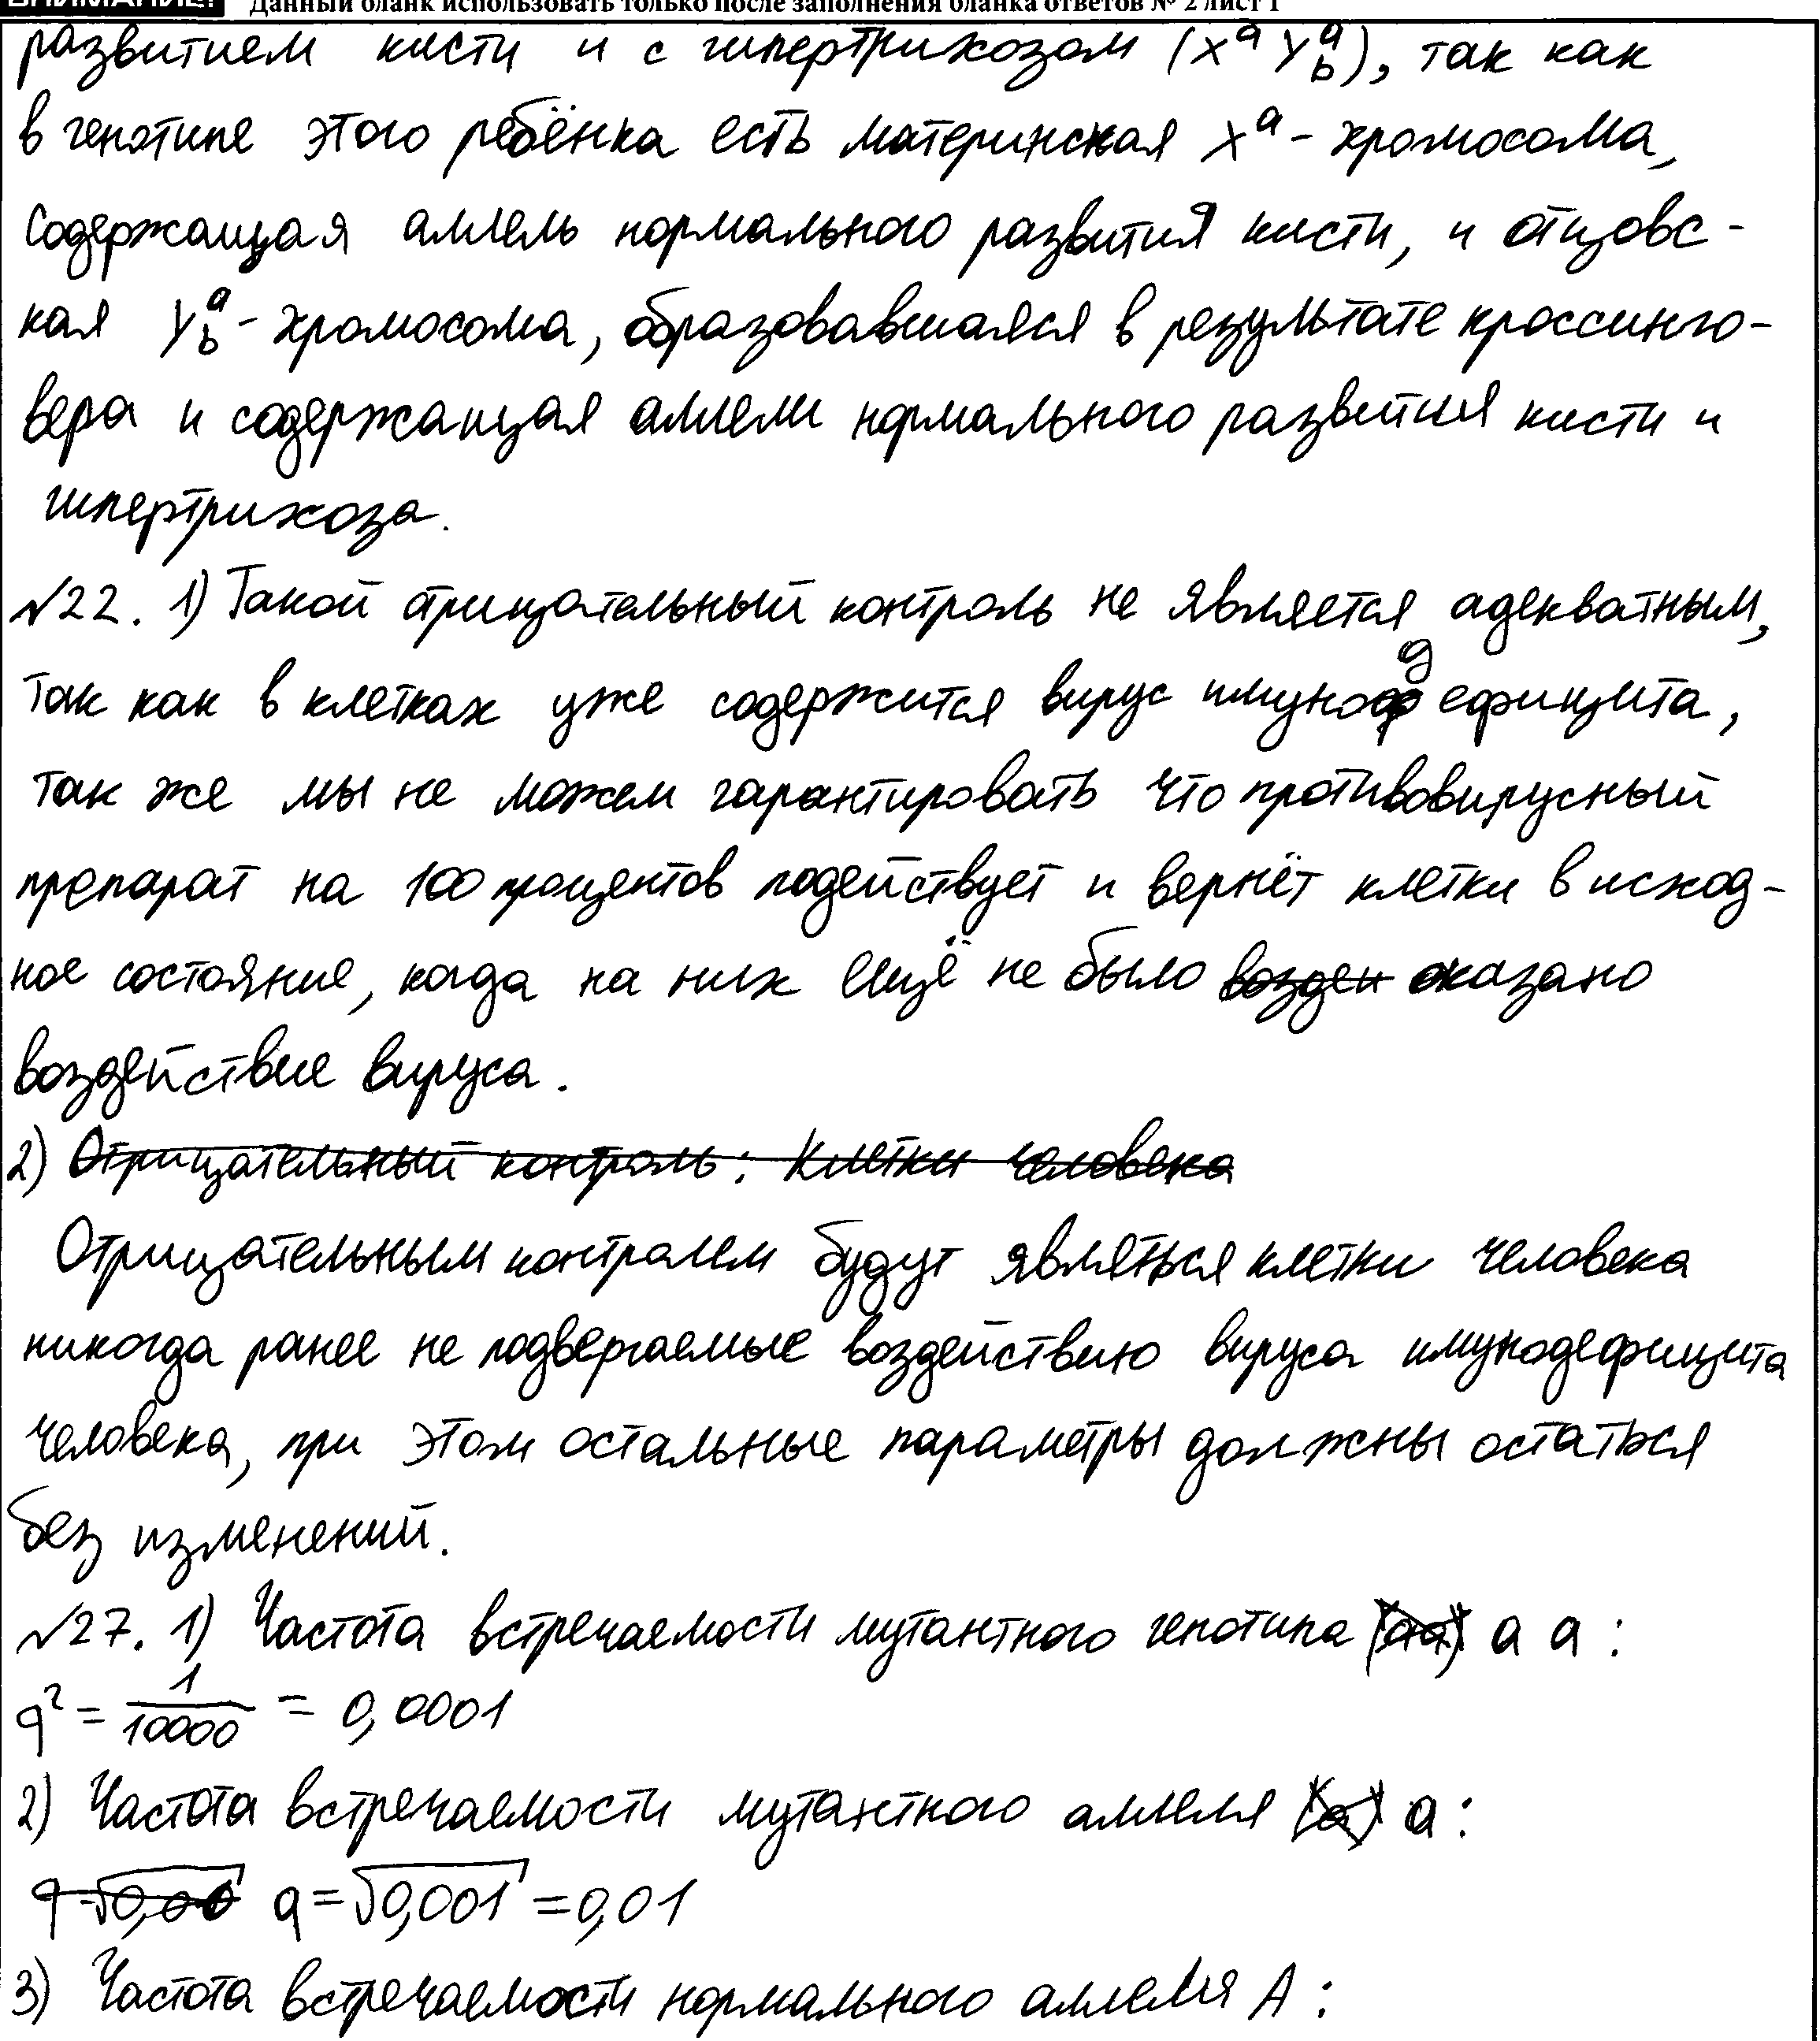 ВНИМАНИЕ! Данный бланк использовать только после заполнения бланка ответов № 2 лист 1
развитием кисти и с гипертрихозом (Xᵃ Yᵃb), так как
в генотипе этого ребёнка есть материнская Xᵃ - хромосома,
содержащая аллель нормального развития кисти, и отцовс -
кая Yᵃb - хромосома, образовавшаяся в результате кроссинго -
вера и содержащая аллели нормального развития кисти и
гипертрихоза.
№22. 1) Такой отрицательный контроль не является адекватным,
так как в клетках уже содержится вирус имунодефицита,
так же мы не можем гарантировать что противовирусный
препарат на 100 процентов подействует и вернёт клетки в исход -
ное состояние, когда на них ещё не было возден оказано
воздействие вируса.
2) Отрицательный контроль: Клетки человека
Отрицательным контролем будут являться клетки человека
никогда ранее не подвергаемые воздействию вируса имунодефицита
человека, при этом остальные параметры должны остаться
без изменений.
№27. 1) Частота встречаемости мутантного генотипа (аа) а а :
q² = 1/10000 = 0,0001
2) Частота встречаемости мутантного аллеля (а) а :
q=√0,00 q = √0,001 = 0,01
3) Частота встречаемости нормального аллеля А :